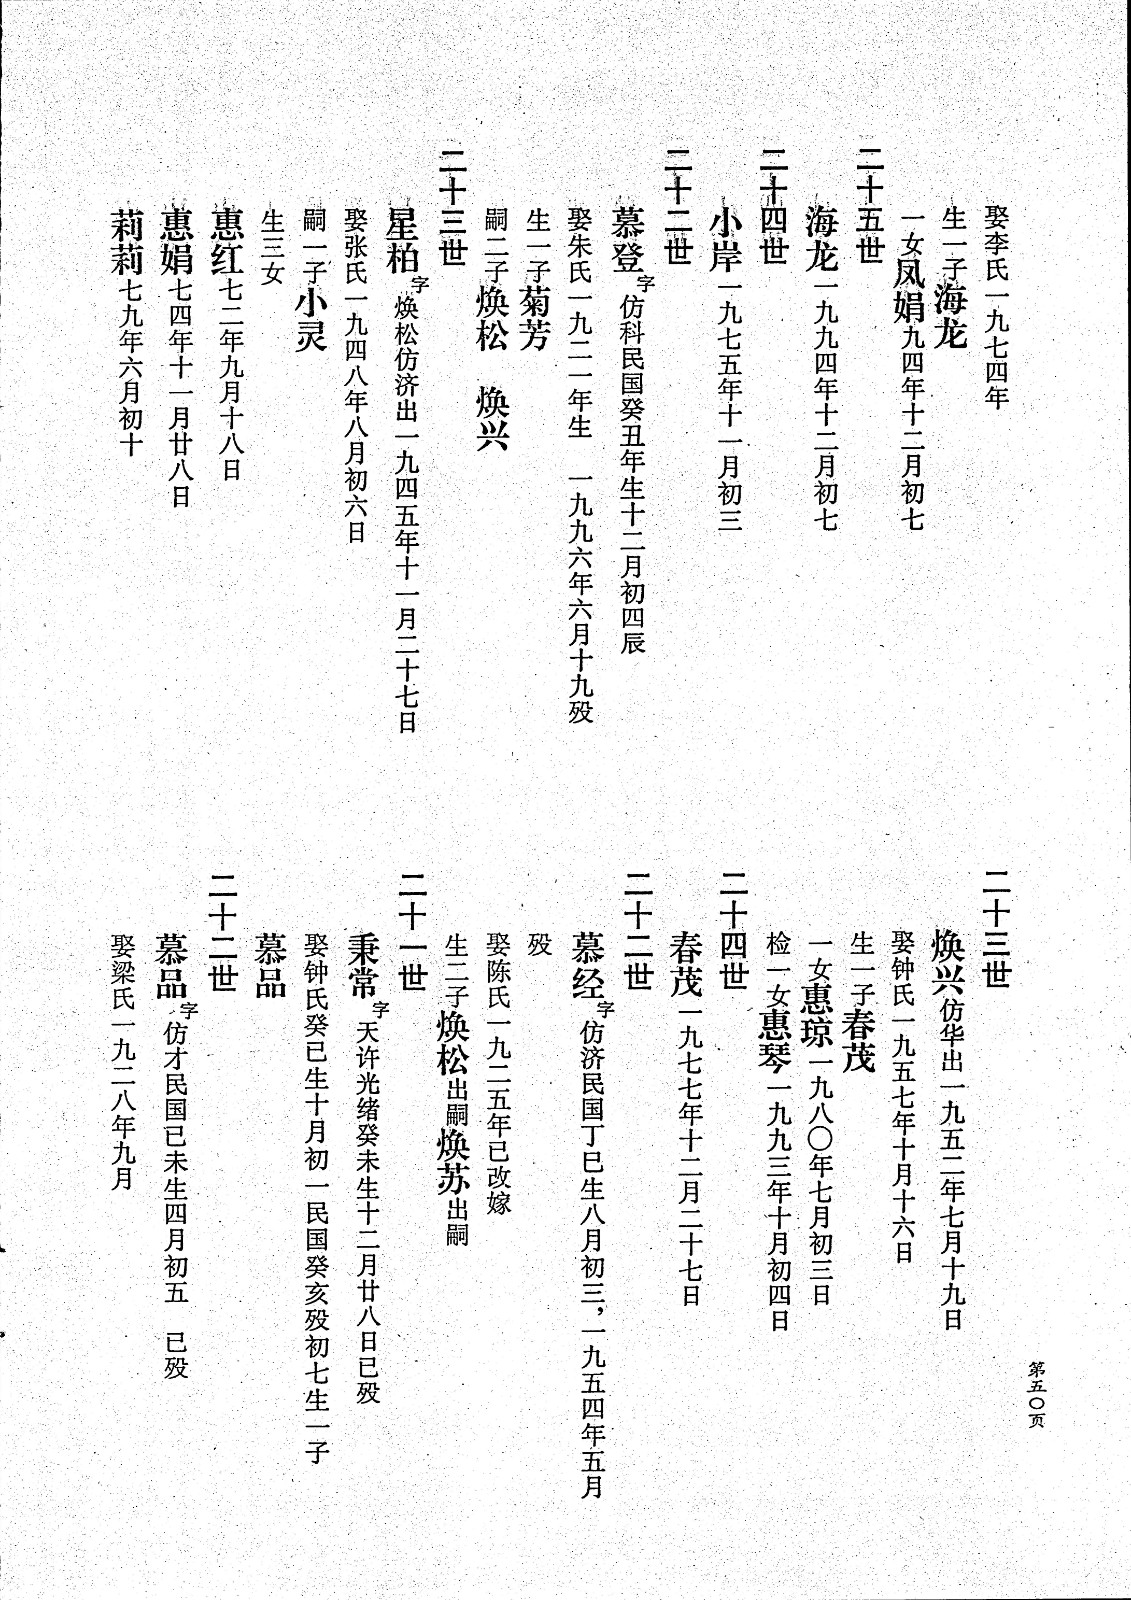 娶李氏一九七四年
生一子海龙
一女凤娟九四年十二月初七
二十五世
海龙一九九四年十二月初七
二十四世
小岸一九七五年十一月初三
二十二世
慕登字仿科民国癸丑年生十二月初四辰
娶朱氏一九二一年生 一九九六年六月十九殁
生一子菊芳
嗣二子焕松 焕兴
二十三世
星柏字焕松仿济出一九四五年十一月二十七日
娶张氏一九四八年八月初六日
嗣一子小灵
生三女
惠红七二年九月十八日
惠娟七四年十一月廿八日
莉莉七九年六月初十
二十三世
焕兴仿华出一九五二年七月十九日
娶钟氏一九五七年十月十六日
生一子春茂
一女惠琼一九八〇年七月初三日
检一女惠琴一九九三年十月初四日
二十四世
春茂一九七七年十二月二十七日
二十二世
慕经字仿济民国丁巳生八月初三，一九五四年五月
殁
娶陈氏一九二五年已改嫁
生二子焕松出嗣焕苏出嗣
二十一世
秉常字天许光绪癸未生十二月廿八日已殁
娶钟氏癸巳生十月初一民国癸亥殁初七生一子
慕品
二十二世
慕品字仿才民国已未生四月初五 已殁
娶梁氏一九二八年九月
第五〇页